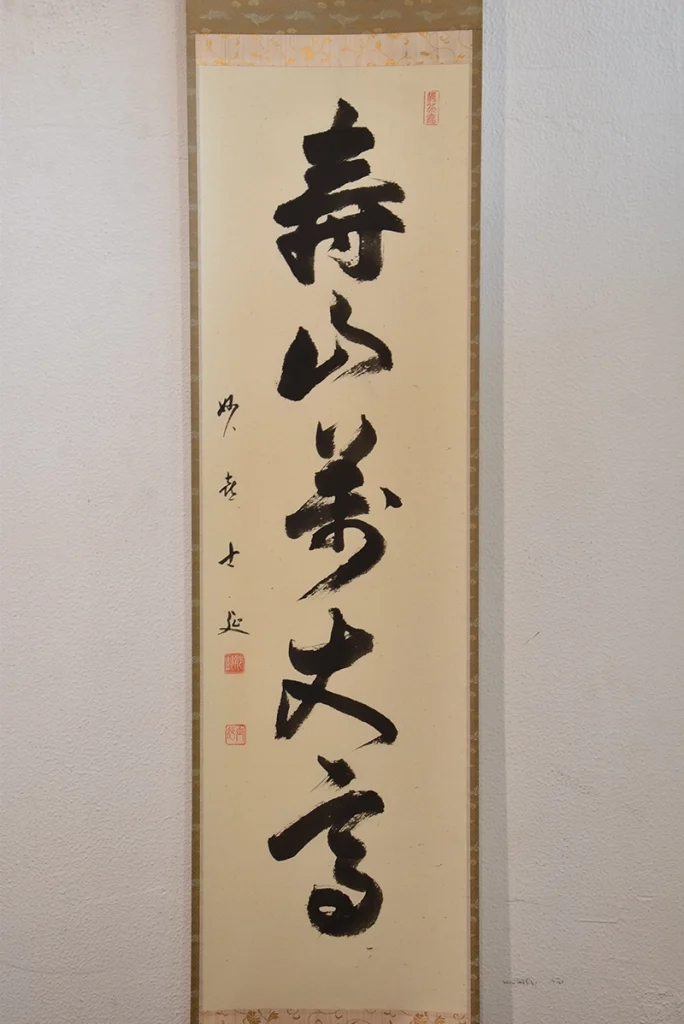 寿山萬丈高
妙喜士延